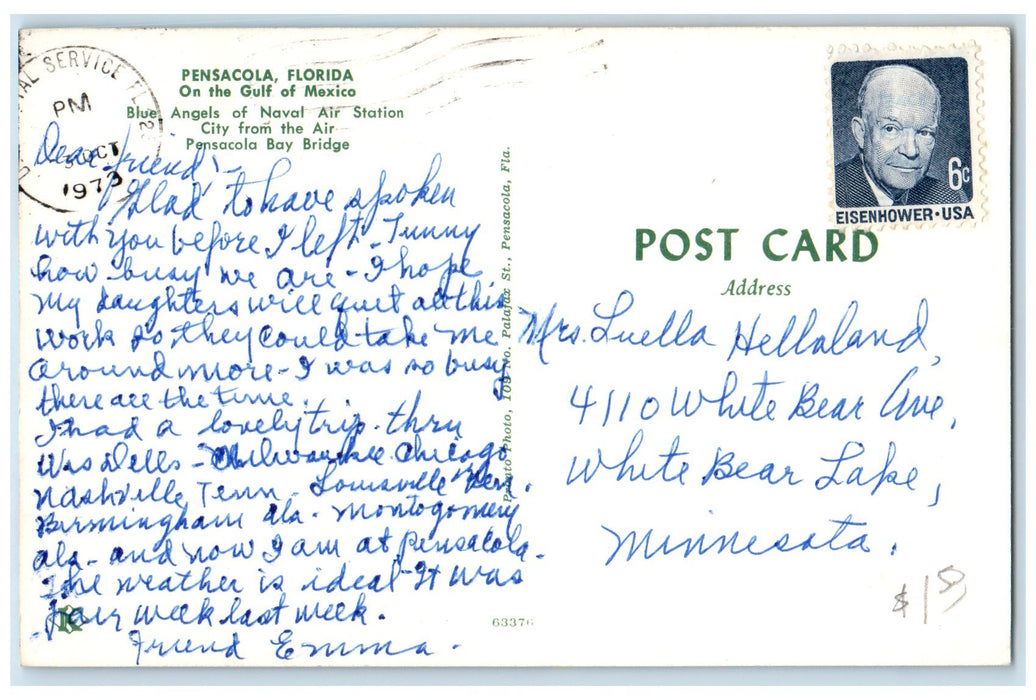 POSTAL SERVICE FL 325
PM
3 OCT
1973
PENSACOLA, FLORIDA
On the Gulf of Mexico
Blue Angels of Naval Air Station
City from the Air
Pensacola Bay Bridge
Dear friend!-
Glad to have spoken
with you before I left - Funny
how busy we are - I hope
my daughters will quit all this
work so they could take me
around more - I was so busy
there all the time.
I had a lovely trip - thru
Wis Dells - Milwaukee Chicago
Nashville Tenn - Louisville Ken.
Birmingham Ala - Montogomery
ala - and now I am at Pensacola.
The weather is ideal It was
fair week last week.
Friend Emma.
109 No. Palafax St., Pensacola, Fla.
63376
6c
EISENHOWER·USA
POST CARD
Address
Mrs. Luella Hellaland,
4110 White Bear Ave,
White Bear Lake,
Minnesota.